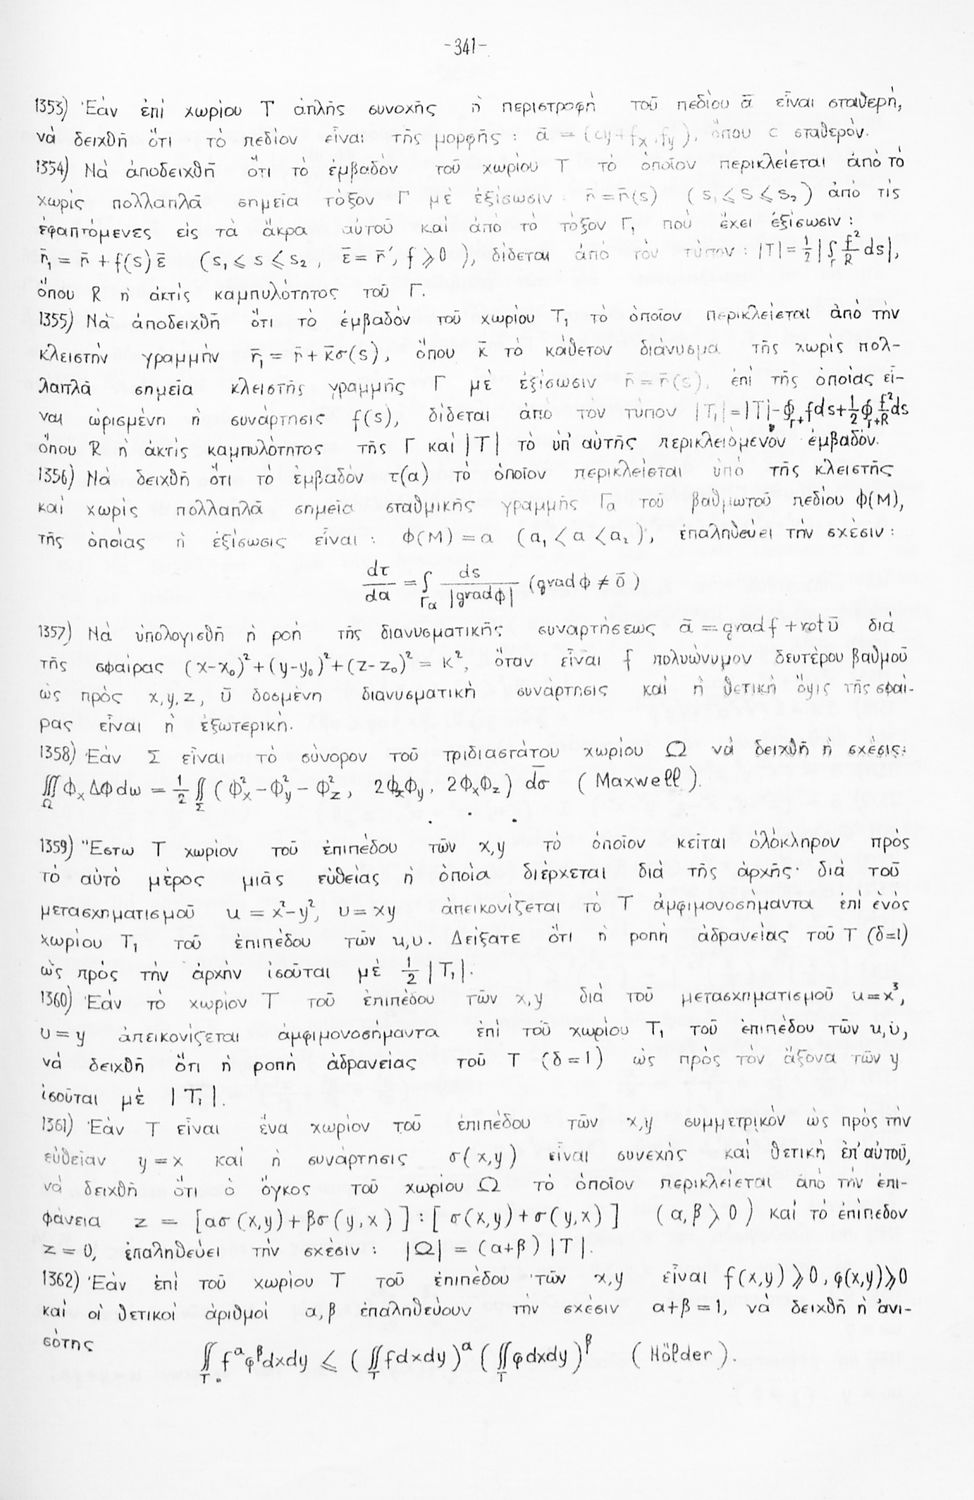 -341-
1353) Ἐάν ἐπί χωρίου Τ ἁπλῆς συνοχῆς ἡ περιστροφή τοῦ πεδίου ᾱ εἶναι σταθερή,
νά δειχθῆ ὅτι τό πεδίον εἶναι τῆς μορφῆς : ᾱ = (cy+f_x, f_y), ὅπου c σταθερόν.
1354) Νά ἀποδειχθῆ ὅτι τό ἐμβαδόν τοῦ χωρίου Τ τό ὁποῖον περικλείεται ἀπό τό
χωρίς πολλαπλᾶ σημεῖα τόξον Γ μέ ἐξίσωσιν r̄=r̄(s) (s₁⩽s⩽s₂) ἀπό τίς
ἐφαπτόμενες εἰς τά ἄκρα αὐτοῦ καί ἀπό τό τόξον Γ₁ πού ἔχει ἐξίσωσιν :
r̄₁ = r̄ + f(s)ε̄ (s₁⩽s⩽s₂, ε̄=r̄', f⩾0), δίδεται ἀπό τόν τύπον : |T|=½|∫_Γ f²/R ds|,
ὅπου R ἡ ἀκτίς καμπυλότητος τοῦ Γ.
1355) Νά ἀποδειχθῆ ὅτι τό ἐμβαδόν τοῦ χωρίου Τ₁ τό ὁποῖον περικλείεται ἀπό τήν
κλειστήν γραμμήν r̄₁ = r̄ + κ̄σ(s), ὅπου κ̄ τό κάθετον διάνυσμα τῆς χωρίς πολ-
λαπλᾶ σημεῖα κλειστῆς γραμμῆς Γ μέ ἐξίσωσιν r̄=r̄(s), ἐπί τῆς ὁποίας εἶ-
ναι ὡρισμένη ἡ συνάρτησις f(s), δίδεται ἀπό τόν τύπον |T₁|=|T|-∮_Γ+ fds+½∮_Γ+ f²/R ds
ὅπου R ἡ ἀκτίς καμπυλότητος τῆς Γ καί |T| τό ὑπ' αὐτῆς περικλειόμενον ἐμβαδόν.
1356) Νά δειχθῆ ὅτι τό ἐμβαδόν τ(α) τό ὁποῖον περικλείεται ὑπό τῆς κλειστῆς
καί χωρίς πολλαπλᾶ σημεῖα σταθμικῆς γραμμῆς Γα τοῦ βαθμωτοῦ πεδίου Φ(Μ),
τῆς ὁποίας ἡ ἐξίσωσις εἶναι : Φ(Μ)=α (α₁<α<α₂), ἐπαληθεύει τήν σχέσιν :
dτ/dα = ∫_Γα ds/|gradΦ| (gradΦ ≠ ō)
1357) Νά ὑπολογισθῆ ἡ ροή τῆς διανυσματικῆς συναρτήσεως ᾱ = gradf + rotῡ διά
τῆς σφαίρας (x-x₀)²+(y-y₀)²+(z-z₀)² = K², ὅταν εἶναι f πολυώνυμον δευτέρου βαθμοῦ
ὡς πρός x,y,z, ῡ δοσμένη διανυσματική συνάρτησις καί ἡ θετική ὄψις τῆς σφαί-
ρας εἶναι ἡ ἐξωτερική.
1358) Ἐάν Σ εἶναι τό σύνορον τοῦ τριδιαστάτου χωρίου Ω νά δειχθῆ ἡ σχέσις:
∭_Ω Φ_x ΔΦ dω = ½ ∬_Σ (Φ²_x-Φ²_y-Φ²_z, 2Φ_xΦ_y, 2Φ_xΦ_z) dσ̄ (Maxwell).
1359) Ἔστω Τ χωρίον τοῦ ἐπιπέδου τῶν x,y τό ὁποῖον κεῖται ὁλόκληρον πρός
τό αὐτό μέρος μιᾶς εὐθείας ἡ ὁποία διέρχεται διά τῆς ἀρχῆς· διά τοῦ
μετασχηματισμοῦ u = x²-y², υ = xy ἀπεικονίζεται τό Τ ἀμφιμονοσήμαντα ἐπί ἑνός
χωρίου Τ₁ τοῦ ἐπιπέδου τῶν u,υ. Δείξατε ὅτι ἡ ροπή ἀδρανείας τοῦ Τ (δ=1)
ὡς πρός τήν ἀρχήν ἰσοῦται μέ ½|T₁|.
1360) Ἐάν τό χωρίον Τ τοῦ ἐπιπέδου τῶν x,y διά τοῦ μετασχηματισμοῦ u=x³,
υ=y ἀπεικονίζεται ἀμφιμονοσήμαντα ἐπί τοῦ χωρίου Τ₁ τοῦ ἐπιπέδου τῶν u,υ,
νά δειχθῆ ὅτι ἡ ροπή ἀδρανείας τοῦ Τ (δ=1) ὡς πρός τόν ἄξονα τῶν y
ἰσοῦται μέ |T₁|.
1361) Ἐάν Τ εἶναι ἕνα χωρίον τοῦ ἐπιπέδου τῶν x,y συμμετρικόν ὡς πρός τήν
εὐθεῖαν y=x καί ἡ συνάρτησις σ(x,y) εἶναι συνεχής καί θετική ἐπ' αὐτοῦ,
νά δειχθῆ ὅτι ὁ ὄγκος τοῦ χωρίου Ω τό ὁποῖον περικλείεται ἀπό τήν ἐπι-
φάνεια z = [ασ(x,y)+βσ(y,x)]:[σ(x,y)+σ(y,x)] (α,β>0) καί τό ἐπίπεδον
z=0, ἐπαληθεύει τήν σχέσιν : |Ω| = (α+β)|T|.
1362) Ἐάν ἐπί τοῦ χωρίου Τ τοῦ ἐπιπέδου τῶν x,y εἶναι f(x,y)⩾0, φ(x,y)⩾0
καί οἱ θετικοί ἀριθμοί α,β ἐπαληθεύουν τήν σχέσιν α+β=1, νά δειχθῆ ἡ ἀνι-
σότης ∬_T f^α φ^β dxdy ⩽ (∬_T fdxdy)^α (∬_T φdxdy)^β (Hölder).